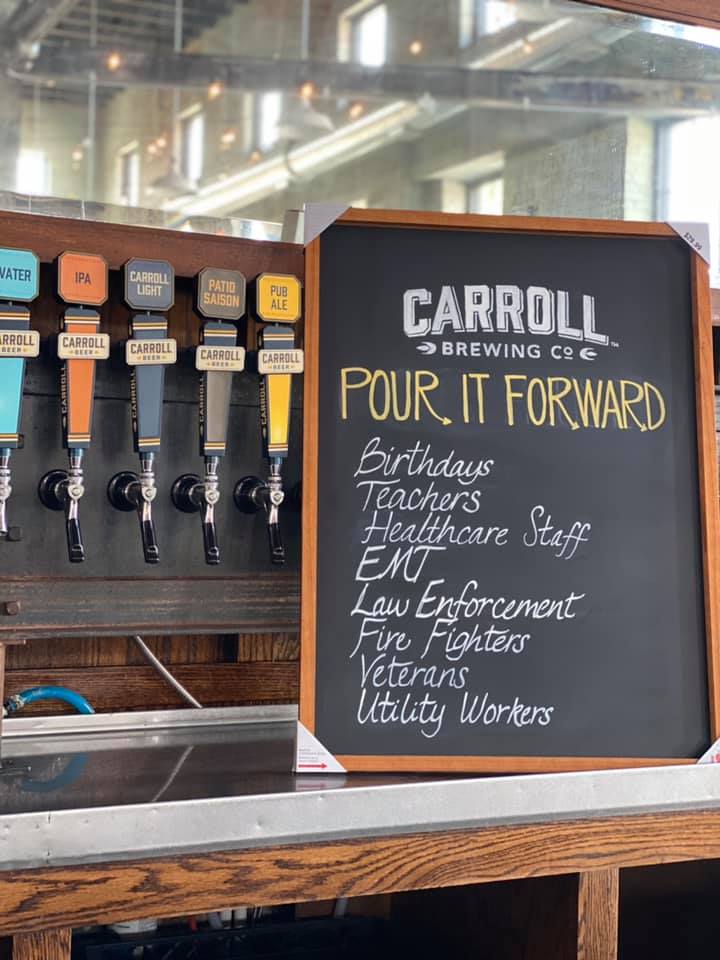 WATER
IPA
CARROLL
LIGHT
PATIO
SAISON
PUB
ALE
CARROLL
BEER
CARROLL
BEER
CARROLL
BEER
CARROLL
BEER
CARROLL
BEER
CARROLL
CARROLL
CARROLL
CARROLL
$79.99
CARROLL™
BREWING CO
POUR IT FORWARD
Birthdays
Teachers
Healthcare Staff
EMT
Law Enforcement
Fire Fighters
Veterans
Utility Workers